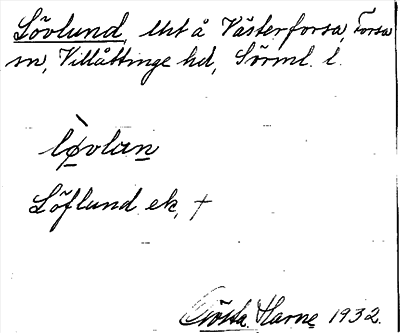 Lövlund, lht å Västerforsa, Forsa
sn, Villåttinge hd, Sörml. l.
lø̀vlan
Löflund ek, †
Gösta Harne 1932.